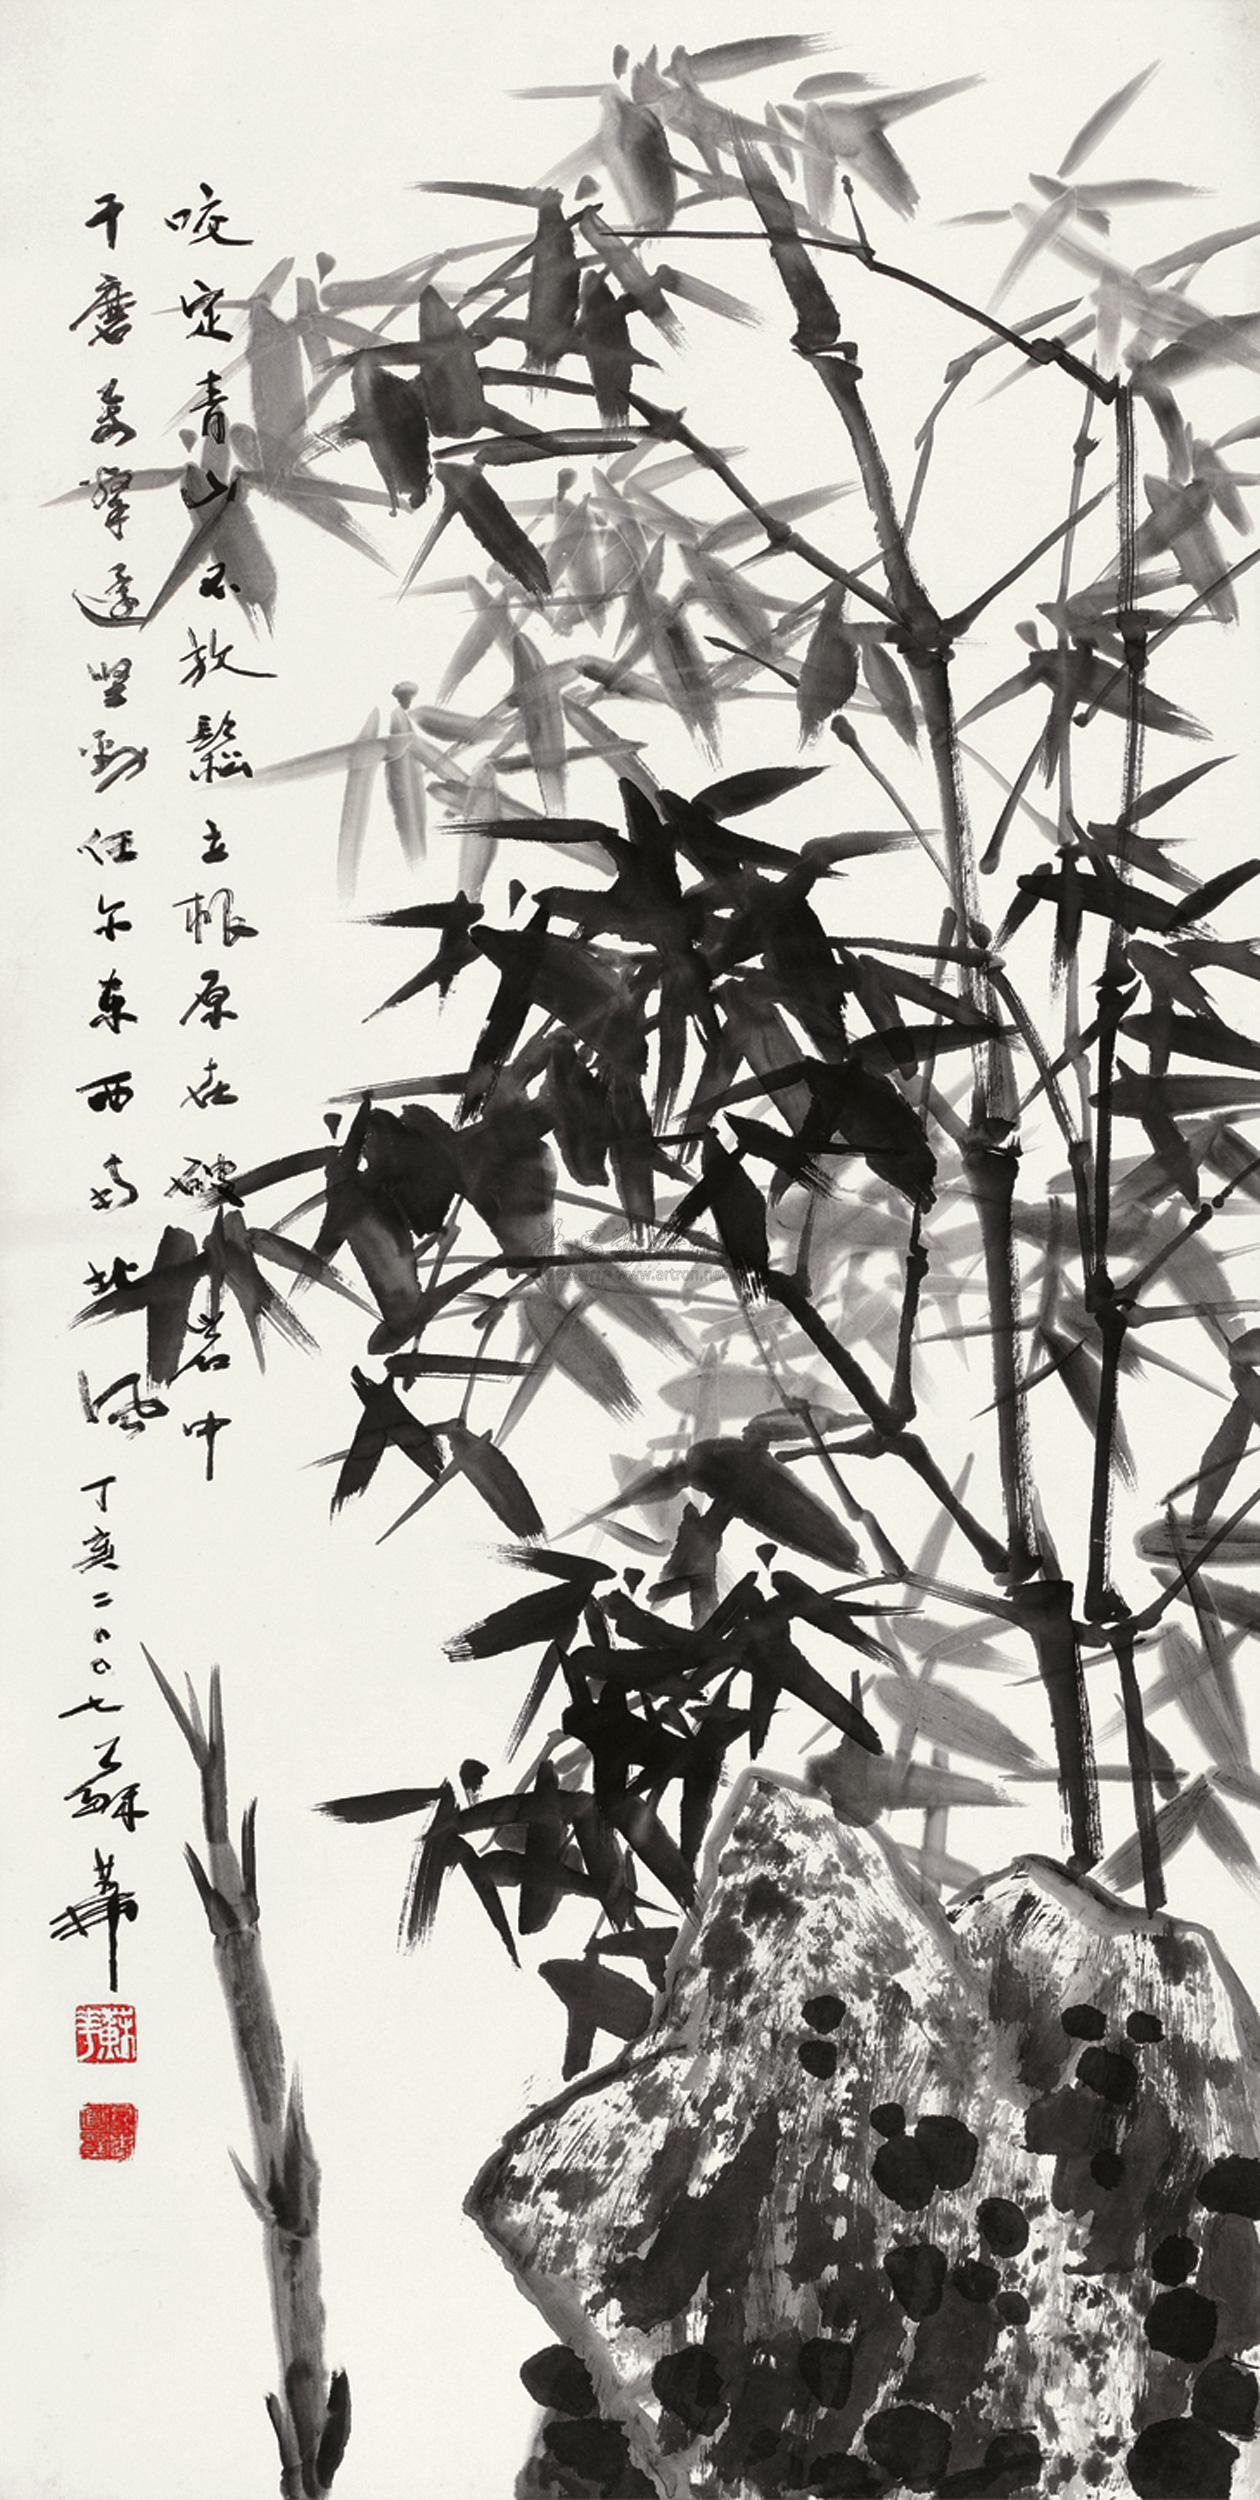 咬定青山不放鬆立根原在破岩中
千磨萬擊還坚勁任尔东西南北风丁亥二〇〇七乙蘇華
www.artron.net